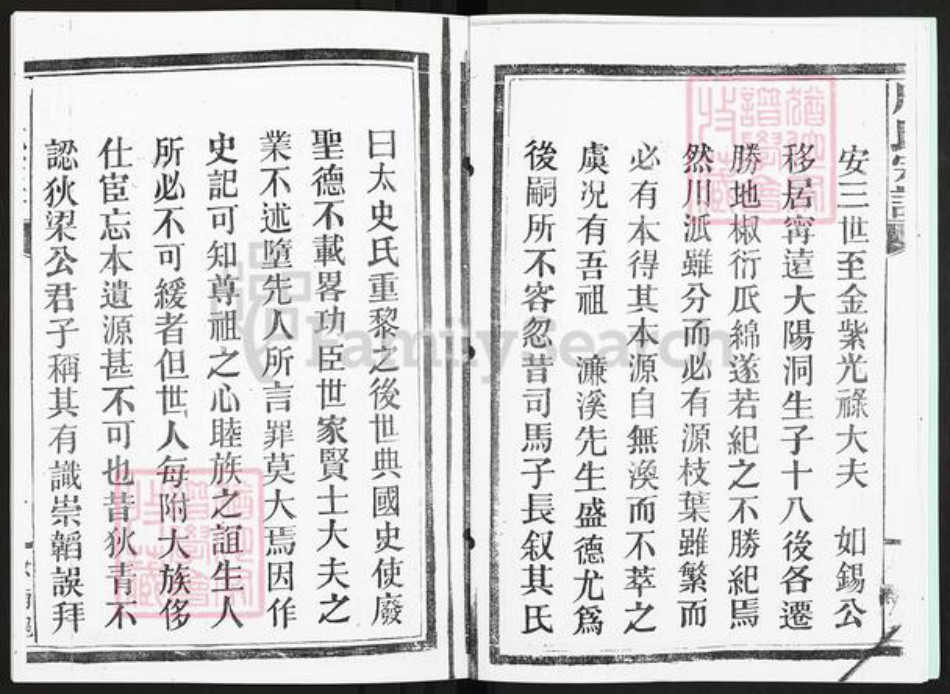 安三世至金紫光祿大夫　如錫公
移居寧遠大陽洞生子十八後各遷
勝地椒衍瓜綿遂若紀之不勝紀焉
然川派雖分而必有源枝葉雖繁而
必有本得其本源自無渙而不萃之
虞况有吾祖　濂溪先生盛德尤爲
後嗣所不容忽昔司馬子長叙其氏
曰太史氏重黎之後世典國史使廢
聖德不載畧功臣世家賢士大夫之
業不述墮先人所言罪莫大焉因作
史記可知尊祖之心睦族之誼生人
所必不可緩者但世人每附大族侈
仕宦忘本遺源甚不可也昔狄青不
認狄梁公君子稱其有識崇韜誤拜
FamilySearch